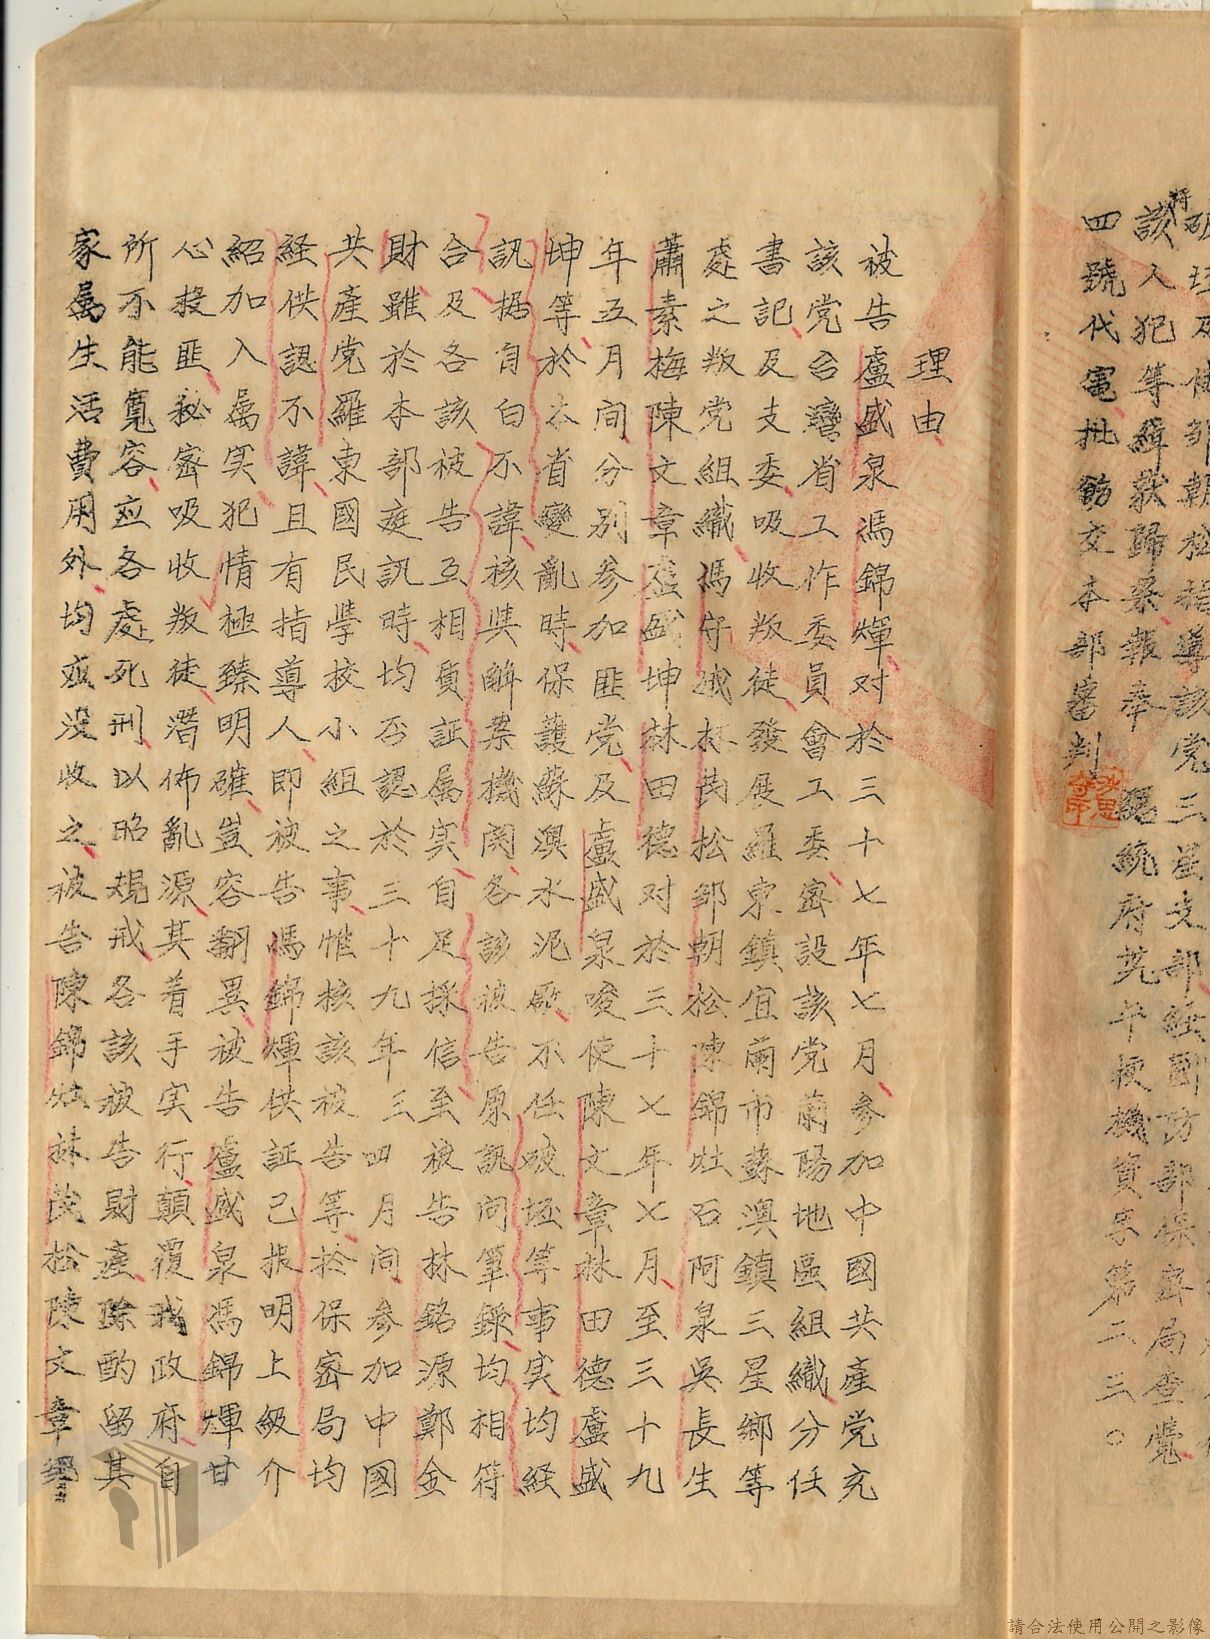 破坵及
該人犯等緝獲歸案報奉
統府
四號代電批飭交本部審判
理由
被告盧盛泉馮錦煇对於三十七年七月參加中國共產党充
該党台灣省工作委員會工委密設該党蘭陽地區組織分任
書記及支委吸收叛徒發展羅東鎮宜蘭市蘇澳鎮三星鄉等
處之叛党組織馮守娥林茂松鄒朝松陳錦灶石阿泉吳長生
蕭素梅陳文章盧盛坤林田德对於三十七年七月至三十九
年五月間分別參加匪党及盧盛泉唆使陳文章林田德盧盛
坤等於本省變亂時保護蘇澳水泥廠不任破坵等事实均経
訊据自白不諱核與解案機関各該被告原訊问筆錄均相符
合及各該被告互相質証属实自足採信至被告林銘源鄭金
財雖於本部庭訊時均否認於三十九年三四月间參加中國
共產党羅東國民學校小組之事惟核該被告等於保密局均
経供認不諱且有指導人即被告馮錦煇供証已振明上級介
紹加入属实犯情極臻明確豈容翻異被告盧盛泉馮錦煇甘
心投匪秘密吸收叛徒潛佈亂源其着手实行顛覆我政府自
所不能寬容应各處死刑以昭規戒各該被告財產除酌留其
家属生活費用外均应没收之被告陳錦灶林茂松陳文章
請合法使用公開之影像